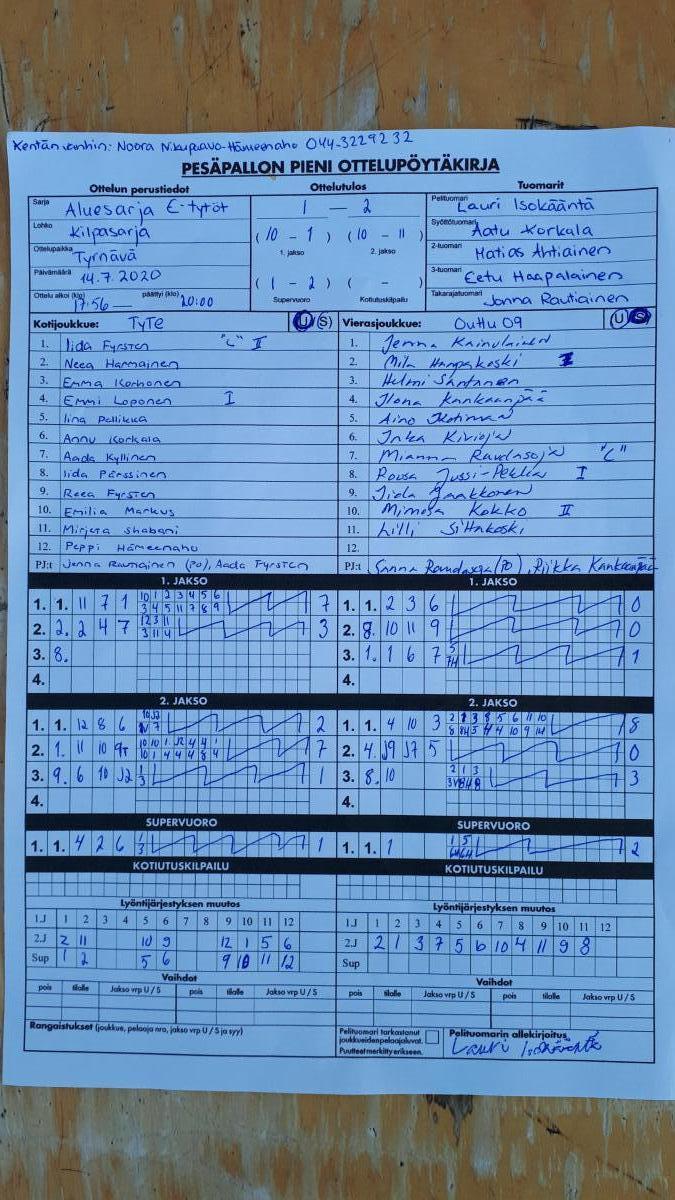 Kentänvanhin: Noora Nikupaavo-Hämeenaho 044-3229232
PESÄPALLON PIENI OTTELUPÖYTÄKIRJA
Ottelun perustiedot Ottelutulos Tuomarit
Sarja Aluesarja E-tytöt
Lohko Kilpasarja
Ottelupaikka Tyrnävä
Päivämäärä 14.7.2020
Ottelu alkoi (klo) 17:56 päättyi (klo) 20:00
1 — 2
(10 - 1) (10 - 11)
1. jakso 2. jakso
(1 - 2) ( - )
Supervuoro Kotiutuskilpailu
Pelituomari Lauri Isokääntä
Syöttötuomari Aatu Korkala
2-tuomari Matias Ahtiainen
3-tuomari Eetu Haapalainen
Takarajatuomari Jonna Rautiainen
Kotijoukkue: TyTe U S
1. Iida Fyrsten "C" II
2. Neea Harmainen
3. Emma Korhonen
4. Emmi Loponen I
5. Iina Pellikka
6. Annu Korkala
7. Aada Kyllinen
8. Iida Pärssinen
9. Reea Fyrsten
10. Emilia Markus
11. Mirjeta Shabani
12. Peppi Hämeenaho
PJ:t Jenna Raunainen (PO), Aada Fyrsten
Vierasjoukkue: Outlu 09 U S
1. Jenna Kainulainen
2. Mila Haapakoski
3. Helmi Santanen
4. Ilona Kankaanpää
5. Aino
6. Inka Kivioja
7. Mianna Raudasoja "C"
8. Roosa Jussi-Pekka I
9. Iida Jaakkonen
10. Mimosa Kokko II
11. Lilli Siltakoski
12.
PJ:t Sanna Raudasoja (PO), Riikka Kankaanpää
1. JAKSO
1. 1. 11 7 1 7
10 1 2 3 4 5 6
3 4 5 11 7 8 9
2. 2. 2 4 7 3
12 3 11
3 11 4
3. 8.
4.
1. JAKSO
1. 1. 2 3 6 0
2. 8. 10 11 9 0
3. 1. 1 6 7 1
4.
2. JAKSO
1. 1. 12 8 6 2
2. 1. 11 10 9T 7
10 10 1 J2 4 4 1
10 1 4 4 4 8 4
3. 9. 6 10 J2 1
1
3
4.
2. JAKSO
1. 1. 4 10 3 8
2. 4. J9 J7 5 0
3. 8. 10 3
2 1 3
4.
SUPERVUORO
1. 1. 4 2 6 1
1
3
SUPERVUORO
1. 1. 1 2
1 5
KOTIUTUSKILPAILU
KOTIUTUSKILPAILU
Lyöntijärjestyksen muutos
1.J 1 2 3 4 5 6 7 8 9 10 11 12
2.J 2 11 10 9 12 1 5 6
Sup 1 2 5 6 9 10 11 12
Lyöntijärjestyksen muutos
1.J 1 2 3 4 5 6 7 8 9 10 11 12
2.J 2 1 3 7 5 6 10 4 11 9 8
Sup
Vaihdot
pois tilalle Jakso vrp U / S pois tilalle Jakso vrp U / S
Vaihdot
pois tilalle Jakso vrp U / S pois tilalle Jakso vrp U / S
Rangaistukset (joukkue, pelaaja nro, jakso vrp U / S ja syy)
Pelituomari tarkastanut
joukkueiden pelaajaluvat.
Puutteet merkitty erikseen.
Pelituomarin allekirjoitus
Lauri Isokääntä